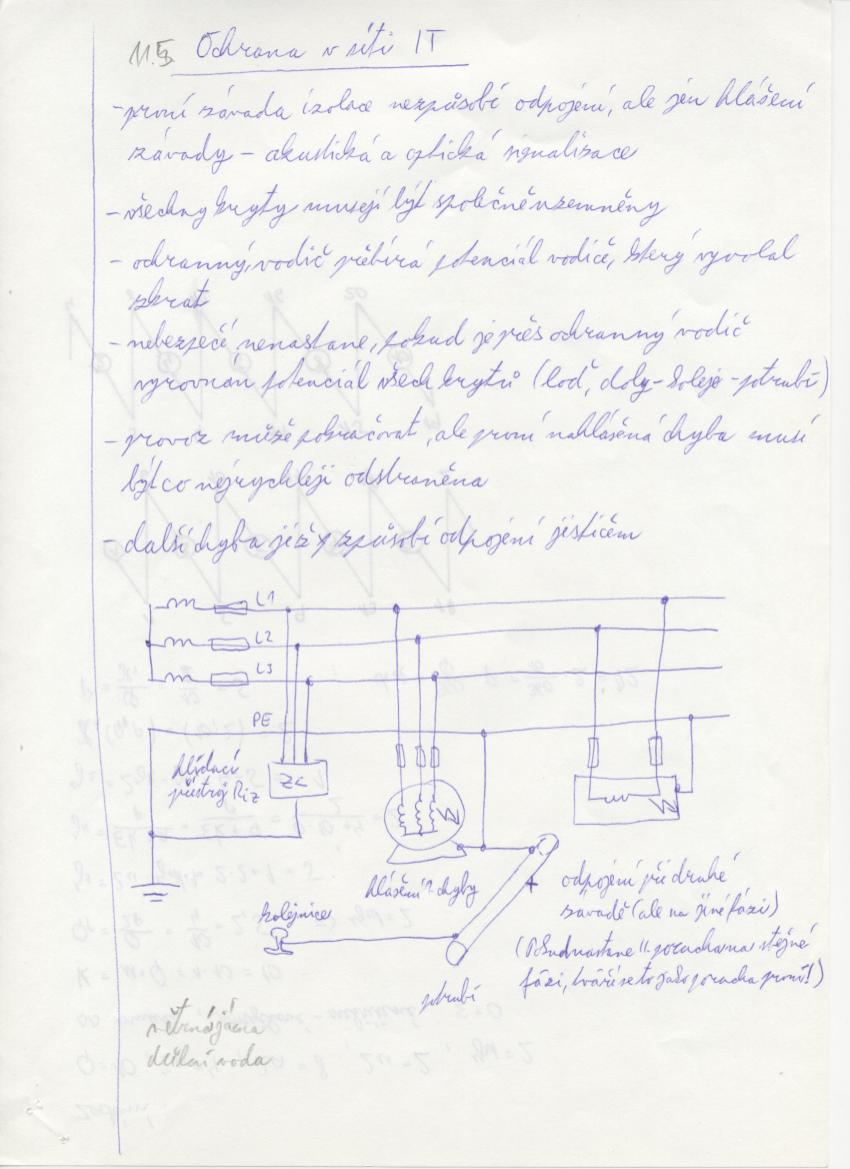 11.5 Ochrana v síti IT
- první závada izolace nezpůsobí odpojení, ale jen hlášení
závady - akustická a optická signalizace
- všechny kryty musejí být společně uzemněny
- ochranný vodič přebírá potenciál vodiče, který vyvolal
zkrat
- nebezpečí nenastane, pokud je přes ochranný vodič
vyrovnán potenciál všech krytů (loď, doly - koleje - potrubí)
- provoz může pokračovat, ale první nahlášená chyba musí
být co nejrychleji odstraněna
- další chyba již způsobí odpojení jističem
L1
L2
L3
PE
hlídací
přístroj Riz
ZC
hlášení chyby
odpojení při druhé
závadě (ale na jiné fázi)
(Pokud nastane II. porucha na stejné
fázi, tváří se to jako porucha první!)
kolejnice
potrubí
větrná jáma
důlní voda